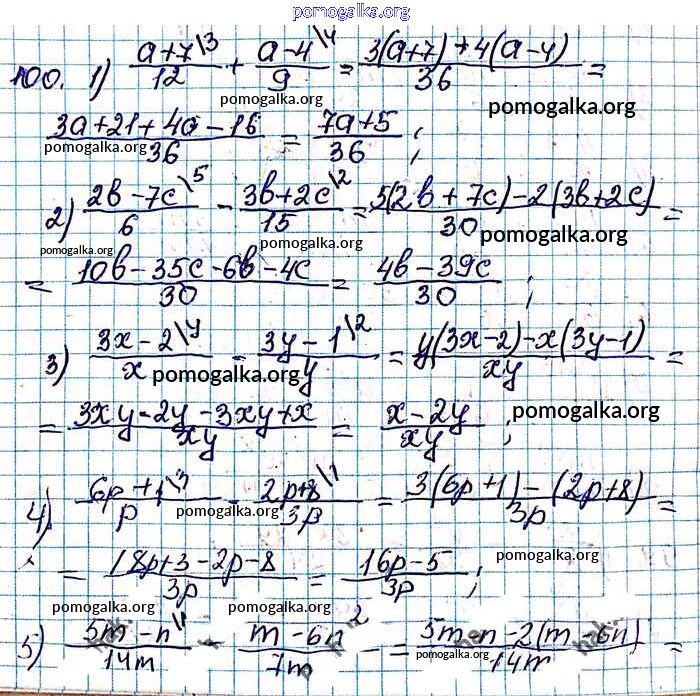 pomogalka.org
100. 1) a+7\3/12 + a-4\4/9 = 3(a+7)+4(a-4)/36 =
pomogalka.org pomogalka.org
3a+21+4a-16/36 = 7a+5/36 ;
pomogalka.org pomogalka.org
2) 2b-7c\5/6 - 3b+2c\2/15 = 5(2b+7c)-2(3b+2c)/30 =
pomogalka.org pomogalka.org pomogalka.org
= 10b-35c-6b-4c/30 = 4b-39c/30 ;
3) 3x-2\y/x - 3y-1\2/y = y(3x-2)-x(3y-1)/xy =
pomogalka.org
= 3xy-2y-3xy+x/xy = x-2y/xy ;
pomogalka.org
4) 6p+1\3/p - 2p+8\1/3p = 3(6p+1)-(2p+8)/3p =
pomogalka.org
= 18p+3-2p-8/3p = 16p-5/3p ;
pomogalka.org
pomogalka.org pomogalka.org
5) 5m-n\1/14m - m-6n 2/7m = 5m-n-2(m-6n)/14m =
pomogalka.org